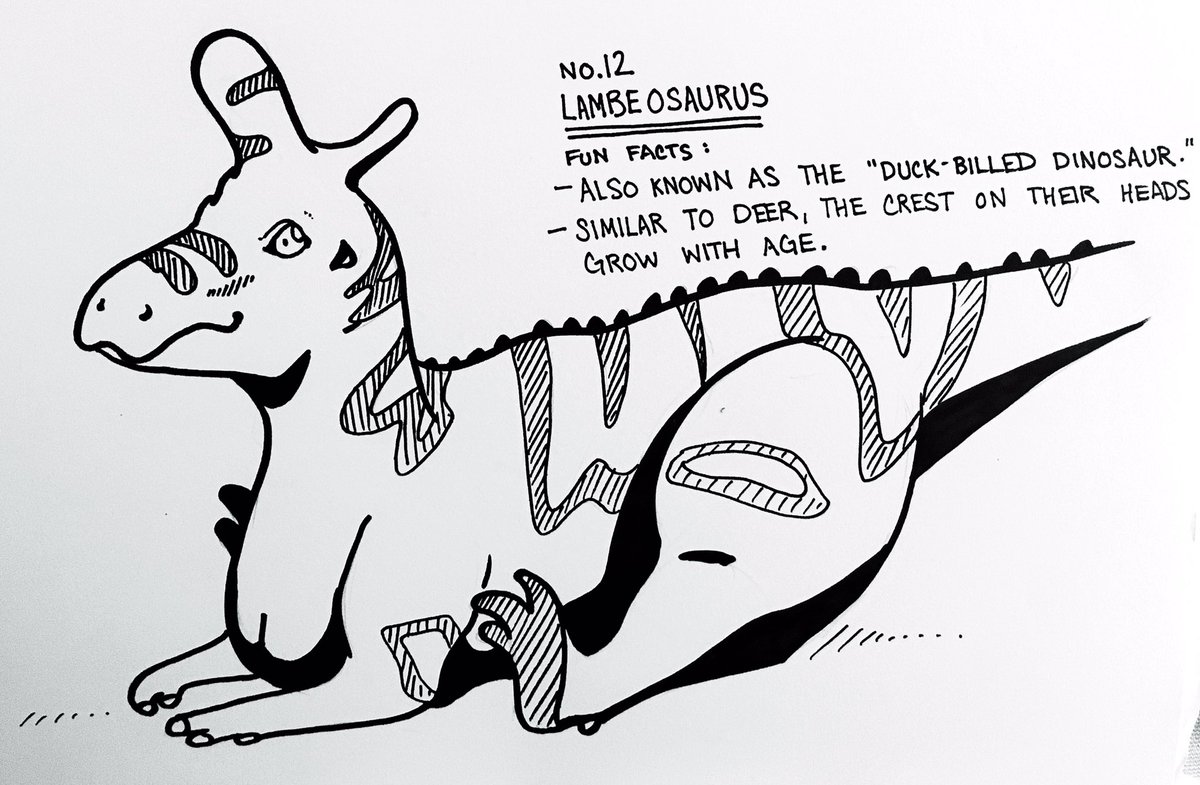 NO.12
LAMBEOSAURUS
FUN FACTS:
- ALSO KNOWN AS THE "DUCK-BILLED DINOSAUR."
- SIMILAR TO DEER, THE CREST ON THEIR HEADS
GROW WITH AGE.